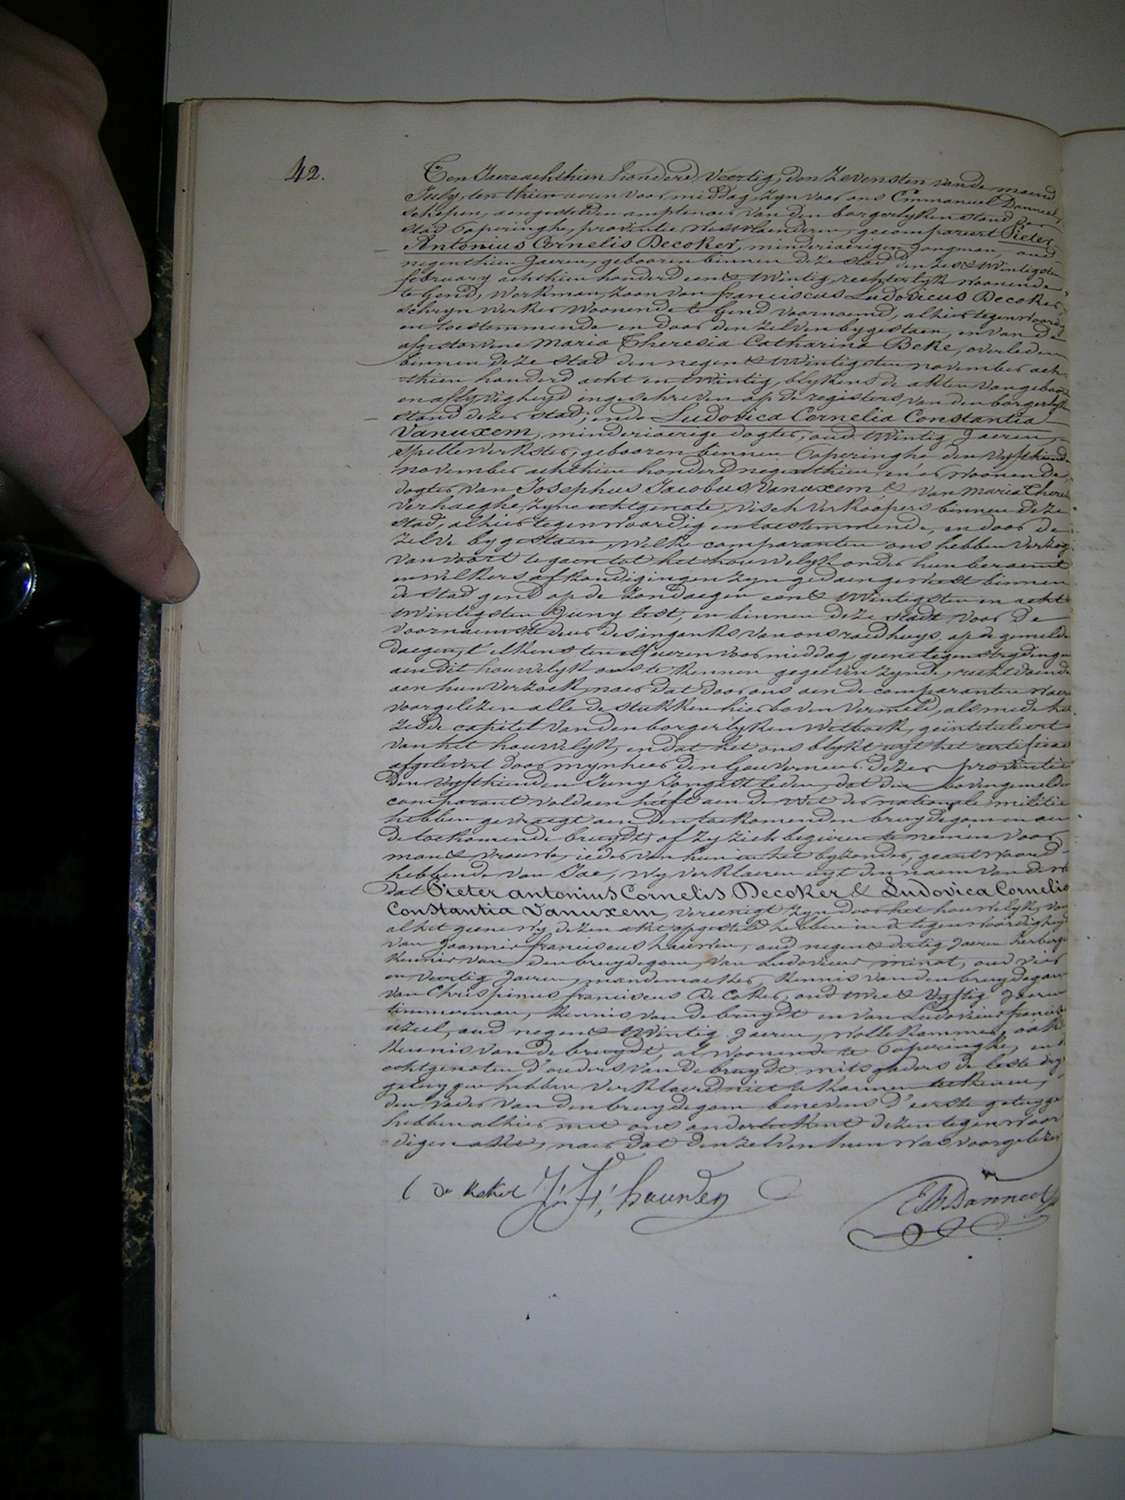 42.
Ten Jaere achthien honderd veertig, den zevensten van de maend
July, ten thien uren voor middag, zyn voor ons Emmanuel Danneel,
schepen, aengestelden amptenaer van den borgerlyken stand der
stad Poperinghe, provintie Westvlaenderen, gecompareert Pieter
Antonius Cornelis Decoker, minderjaerigen jongman, oud
negenthien Jaeren, gebooren binnen deze stad den zes & twintigsten
february achthien honderd een & twintig, rechterlyk woonende
te Gend, Werkman, zoon van franciscus Ludovicus Decoker,
schrynwerker woonende te Gend voornoemd, alhier tegenwoordig
en toestemmende en door den zelven bygestaen, en van de
afgestorvene Maria Theresia Catharina Beke, overleden
binnen deze stad den negen & twintigsten november ach-
thien honderd acht en twintig, blykens de akten van geboorte
en aflyvigheyd ingeschreven op de registers van den borgerlyken
stand dezer stad; ende Ludovica Cornelia Constantia
Vanuxem, minderjaerige dogter, oud twintig Jaeren,
spellewerkster, gebooren binnen Poperinghe den vyfthienden
november achthien honderd negenthien, en er woonende,
dogter van Josephus Jacobus Vanuxem & van Maria There
Verhaeghe, zyne echtgenote, vischverkoopers binnen deze
stad, alhier tegenwoordig en toestemmende, en door de
zelve bygestaen, welke comparanten ons hebben verzogt
van voort te gaen tot het houwelyk onder hun beraemt
en welkers afkondigingen zyn gedaen geweest binnen
de stad gend op de zondaegen een & twintigsten en acht &
twintigsten Juny lest, en binnen deze stadt voor de
voornaemste deur des ingangs van ons raedhuys, op de gemelde
daegen, t'elkens ten elf uren voor middag, geene tegenstrydinge
aen dit houwelyk ons te kennen gegeven zynde, recht doende
aen hun verzoek, naer dat door ons aen de comparanten waer
voorgelezen alle de stukken hier boven vermeld, alsmede het
zesde capitel van den borgerlyken Wetboek, geïntituleert
van het houwelyk, en dat het ons blykt uyt het certificaet
afgelevert door mynheer den Gouverneur dezer provintie
den vyfthienden Juny jongstleden, dat den bovengemelden
comparant voldaen heeft aen de Wet der nationale militie
hebben gevraegt aen den toekomenden bruydegom en aen
de toekomende bruydt, of zy zich begeven te nemen voor
man & vrouw, ieder van hun in het byzonder, geantwoord
hebbende van Jae, Wy verklaeren uyt den naem van de wet
dat Pieter antonius Cornelis Decoker & Ludovica Cornelia
Constantia Vanuxem, vereenigt zyn door het houwelyk, van
al het geene wy dezen akt opgesteld hebben in de tegenwoordigheyd
van Joannes franciscus, oud negen & dertig Jaeren herbergier
kennis van den bruydegom, van Ludovicus minat, oud vier
en veertig Jaeren, mandemaeker, kennis van den bruydegom
van Chrispinus franciscus De Coker, oud twee & vyftig Jaeren
timmerman, kennis van de bruydt en van Ludovicus francis
oud negen & twintig Jaeren, wollekammer, ook
kennis van de bruydt, al woonende te Poperinghe, en d'
echtgenoten d'ouders van de bruydt mitsgaders de leste dry
getuygen hebben verklaerd niet te konnen teekenen,
den vader van den bruydegom benevens d'eerste getuyge
hebben alhier met ons onderteekent dezen tegenwoor-
digen akt, naer dat den zelven hun was voorgelezen
De Koker
Dannee